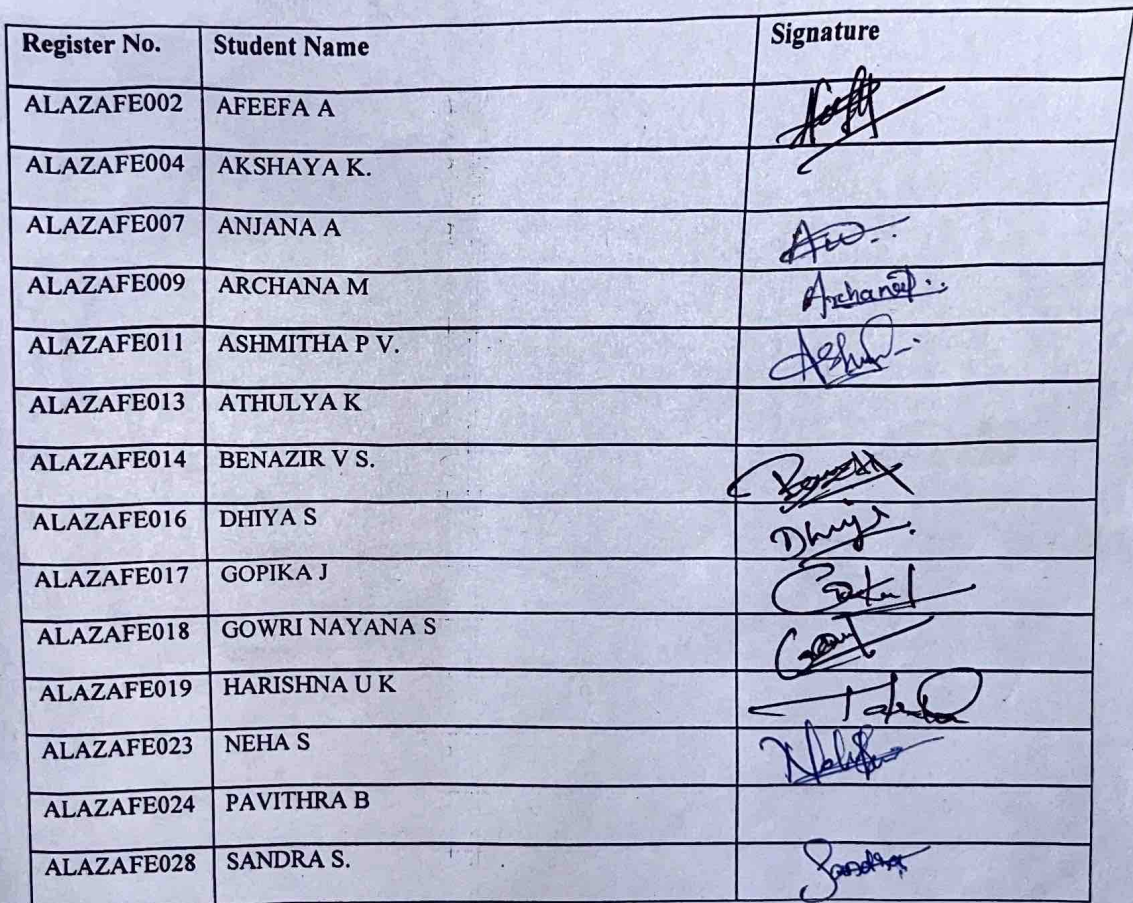 Register No. Student Name Signature
ALAZAFE002 AFEEFA A
ALAZAFE004 AKSHAYA K.
ALAZAFE007 ANJANA A
ALAZAFE009 ARCHANA M
ALAZAFE011 ASHMITHA P V.
ALAZAFE013 ATHULYA K
ALAZAFE014 BENAZIR V S.
ALAZAFE016 DHIYA S
ALAZAFE017 GOPIKA J
ALAZAFE018 GOWRI NAYANA S
ALAZAFE019 HARISHNA U K
ALAZAFE023 NEHA S
ALAZAFE024 PAVITHRA B
ALAZAFE028 SANDRA S.